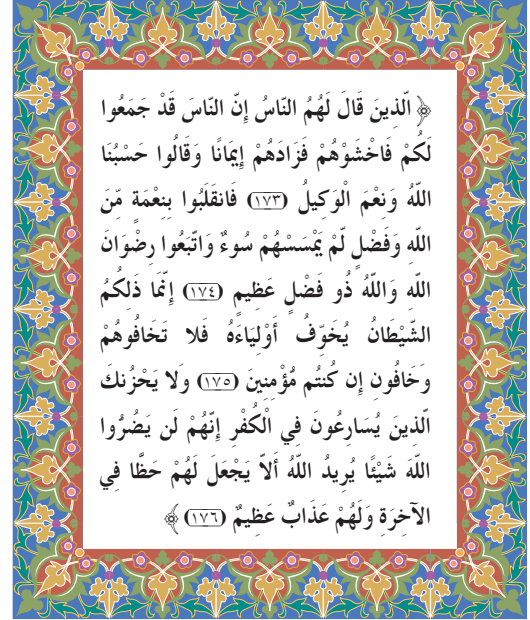 ﴿ الَّذِينَ قَالَ لَهُمُ النَّاسُ إِنَّ النَّاسَ قَدْ جَمَعُوا
لَكُمْ فَاخْشَوْهُمْ فَزَادَهُمْ إِيمَانًا وَقَالُوا حَسْبُنَا
اللَّهُ وَنِعْمَ الْوَكِيلُ (١٧٣) فَانقَلَبُوا بِنِعْمَةٍ مِّنَ
اللَّهِ وَفَضْلٍ لَّمْ يَمْسَسْهُمْ سُوءٌ وَاتَّبَعُوا رِضْوَانَ
اللَّهِ وَاللَّهُ ذُو فَضْلٍ عَظِيمٍ (١٧٤) إِنَّمَا ذَلِكُمُ
الشَّيْطَانُ يُخَوِّفُ أَوْلِيَاءَهُ فَلا تَخَافُوهُمْ
وَخَافُونِ إِن كُنتُم مُّؤْمِنِينَ (١٧٥) وَلا يَحْزُنكَ
الَّذِينَ يُسَارِعُونَ فِي الْكُفْرِ إِنَّهُمْ لَن يَضُرُّوا
اللَّهَ شَيْئًا يُرِيدُ اللَّهُ أَلاَّ يَجْعَلَ لَهُمْ حَظًّا فِي
الآخِرَةِ وَلَهُمْ عَذَابٌ عَظِيمٌ (١٧٦) ﴾